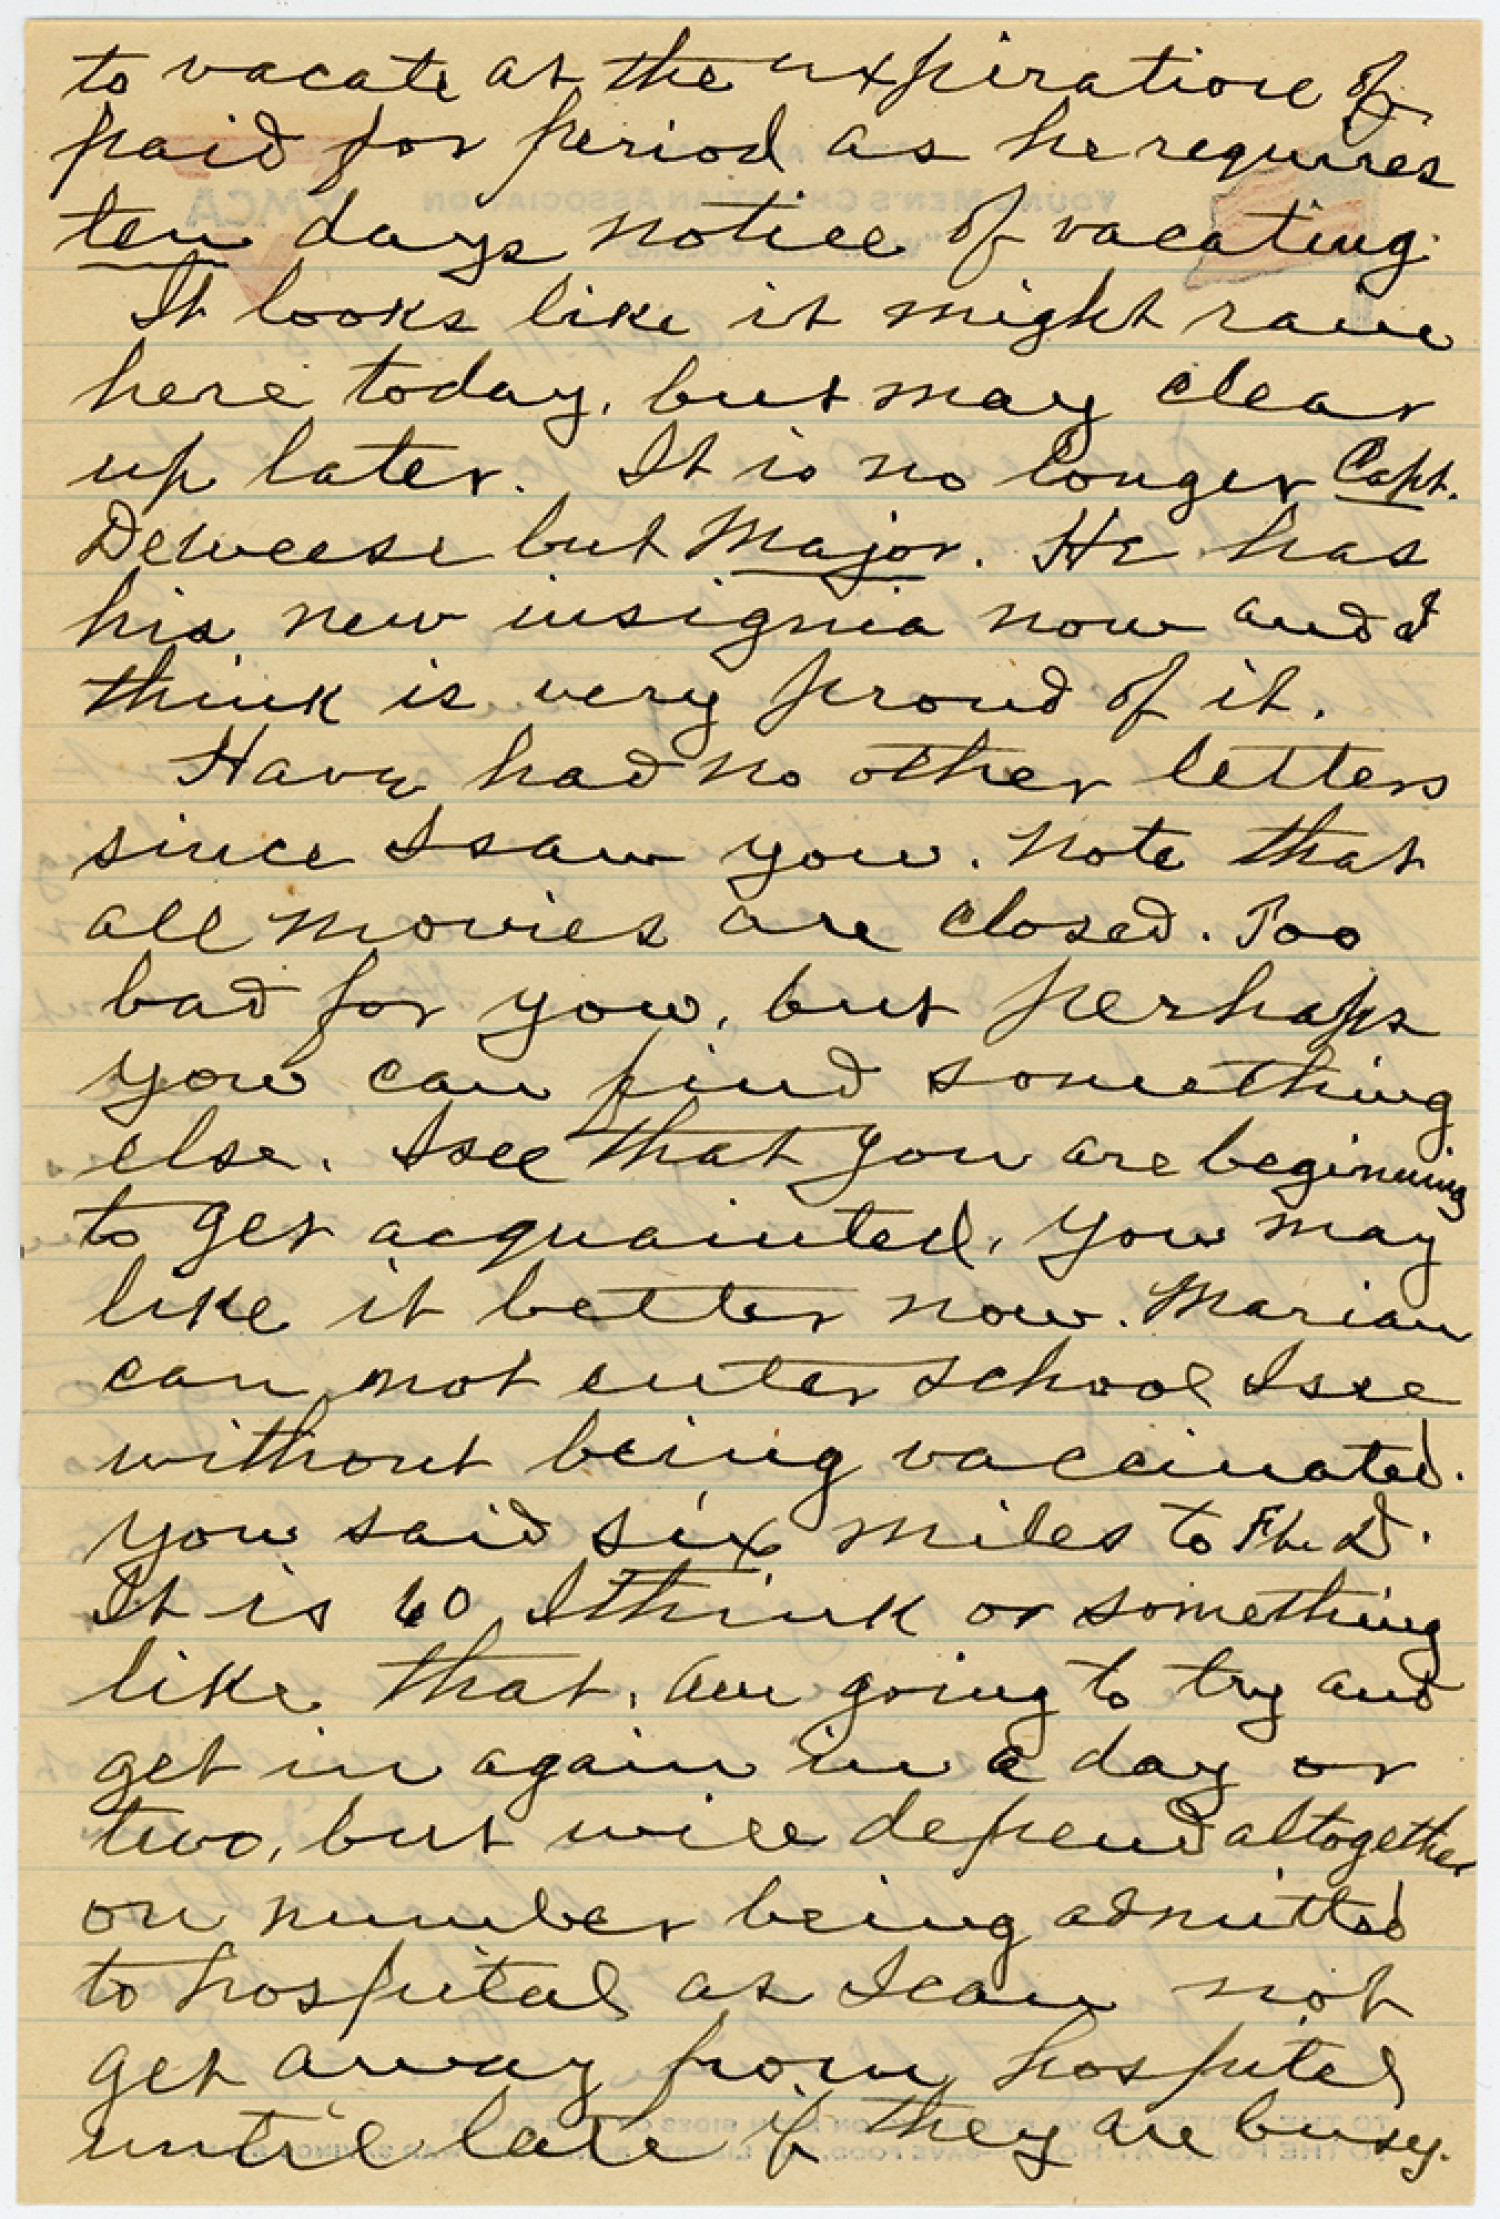 to vacate at the expiration of
paid for period as he requires
ten days notice of vacating.
It looks like it might rain
here today, but may clear
up later. It is no longer Capt.
Deweese but Major. He has
his new insignia now and I
think is very proud of it.
Have had no other letters
since I saw you. Note that
all movies are closed. Too
bad for you, but perhaps
you can find something
else. I see that you are beginning
to get acquainted, You may
like it better now. Marian
can not enter school I see
without being vaccinated.
You said six miles to Ft. D.
It is 60 I think or something
like that. Am going to try and
get in again in a day or
two, but will depend altogether
on number being admitted
to hospital as I can not
get away from hospital
until late if they are busy.